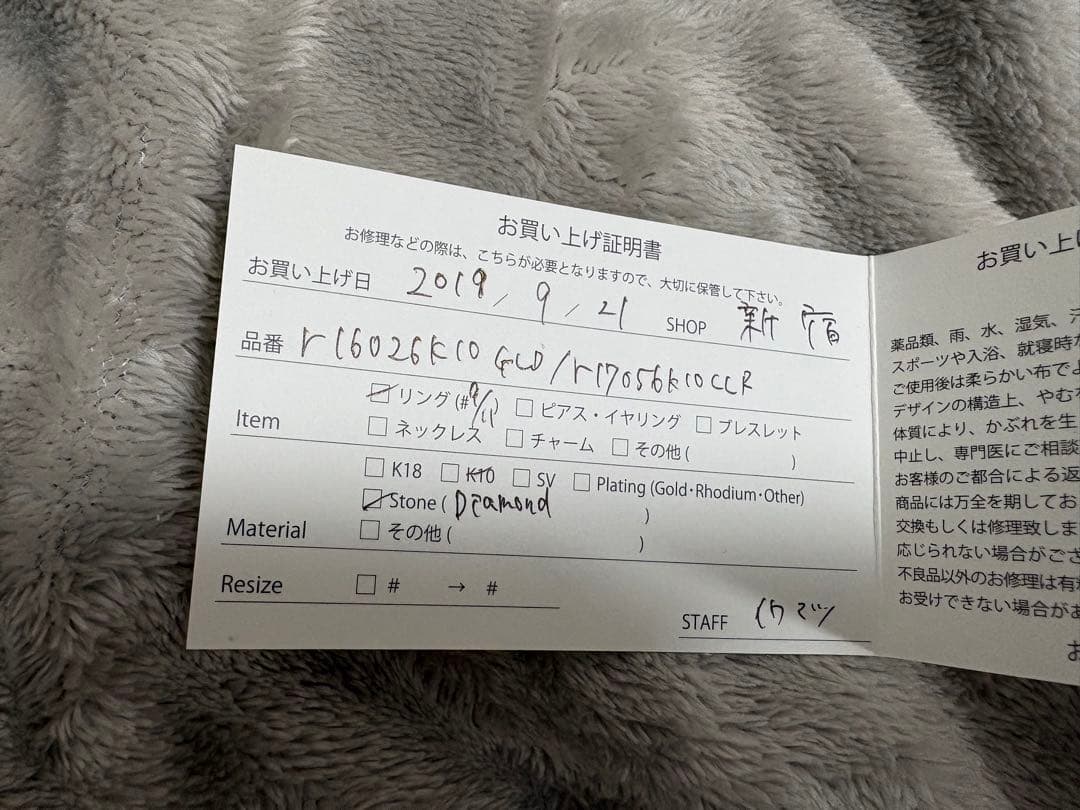 お買い上げ証明書
お修理などの際は、こちらが必要となりますので、大切に保管して下さい。
お買い上げ日 2019 / 9 / 21 SHOP 新宿
品番 r16026K10 GLD/r17056K10CCR
Item ☑ リング (#9/11) □ ピアス・イヤリング □ ブレスレット
□ ネックレス □ チャーム □ その他 ( )
□ K18 □ K10 □ SV □ Plating (Gold・Rhodium・Other)
☑ Stone ( Diamond )
Material □ その他 ( )
Resize □ # → #
STAFF
お買い上げ
薬品類、雨、水、湿気、汗
スポーツや入浴、就寝時か
ご使用後は柔らかい布でよ
デザインの構造上、やむを
体質により、かぶれを生
中止し、専門医にご相談
お客様のご都合による返
商品には万全を期してお
交換もしくは修理致しま
応じられない場合がござ
不良品以外のお修理は有料
お受けできない場合があ
お